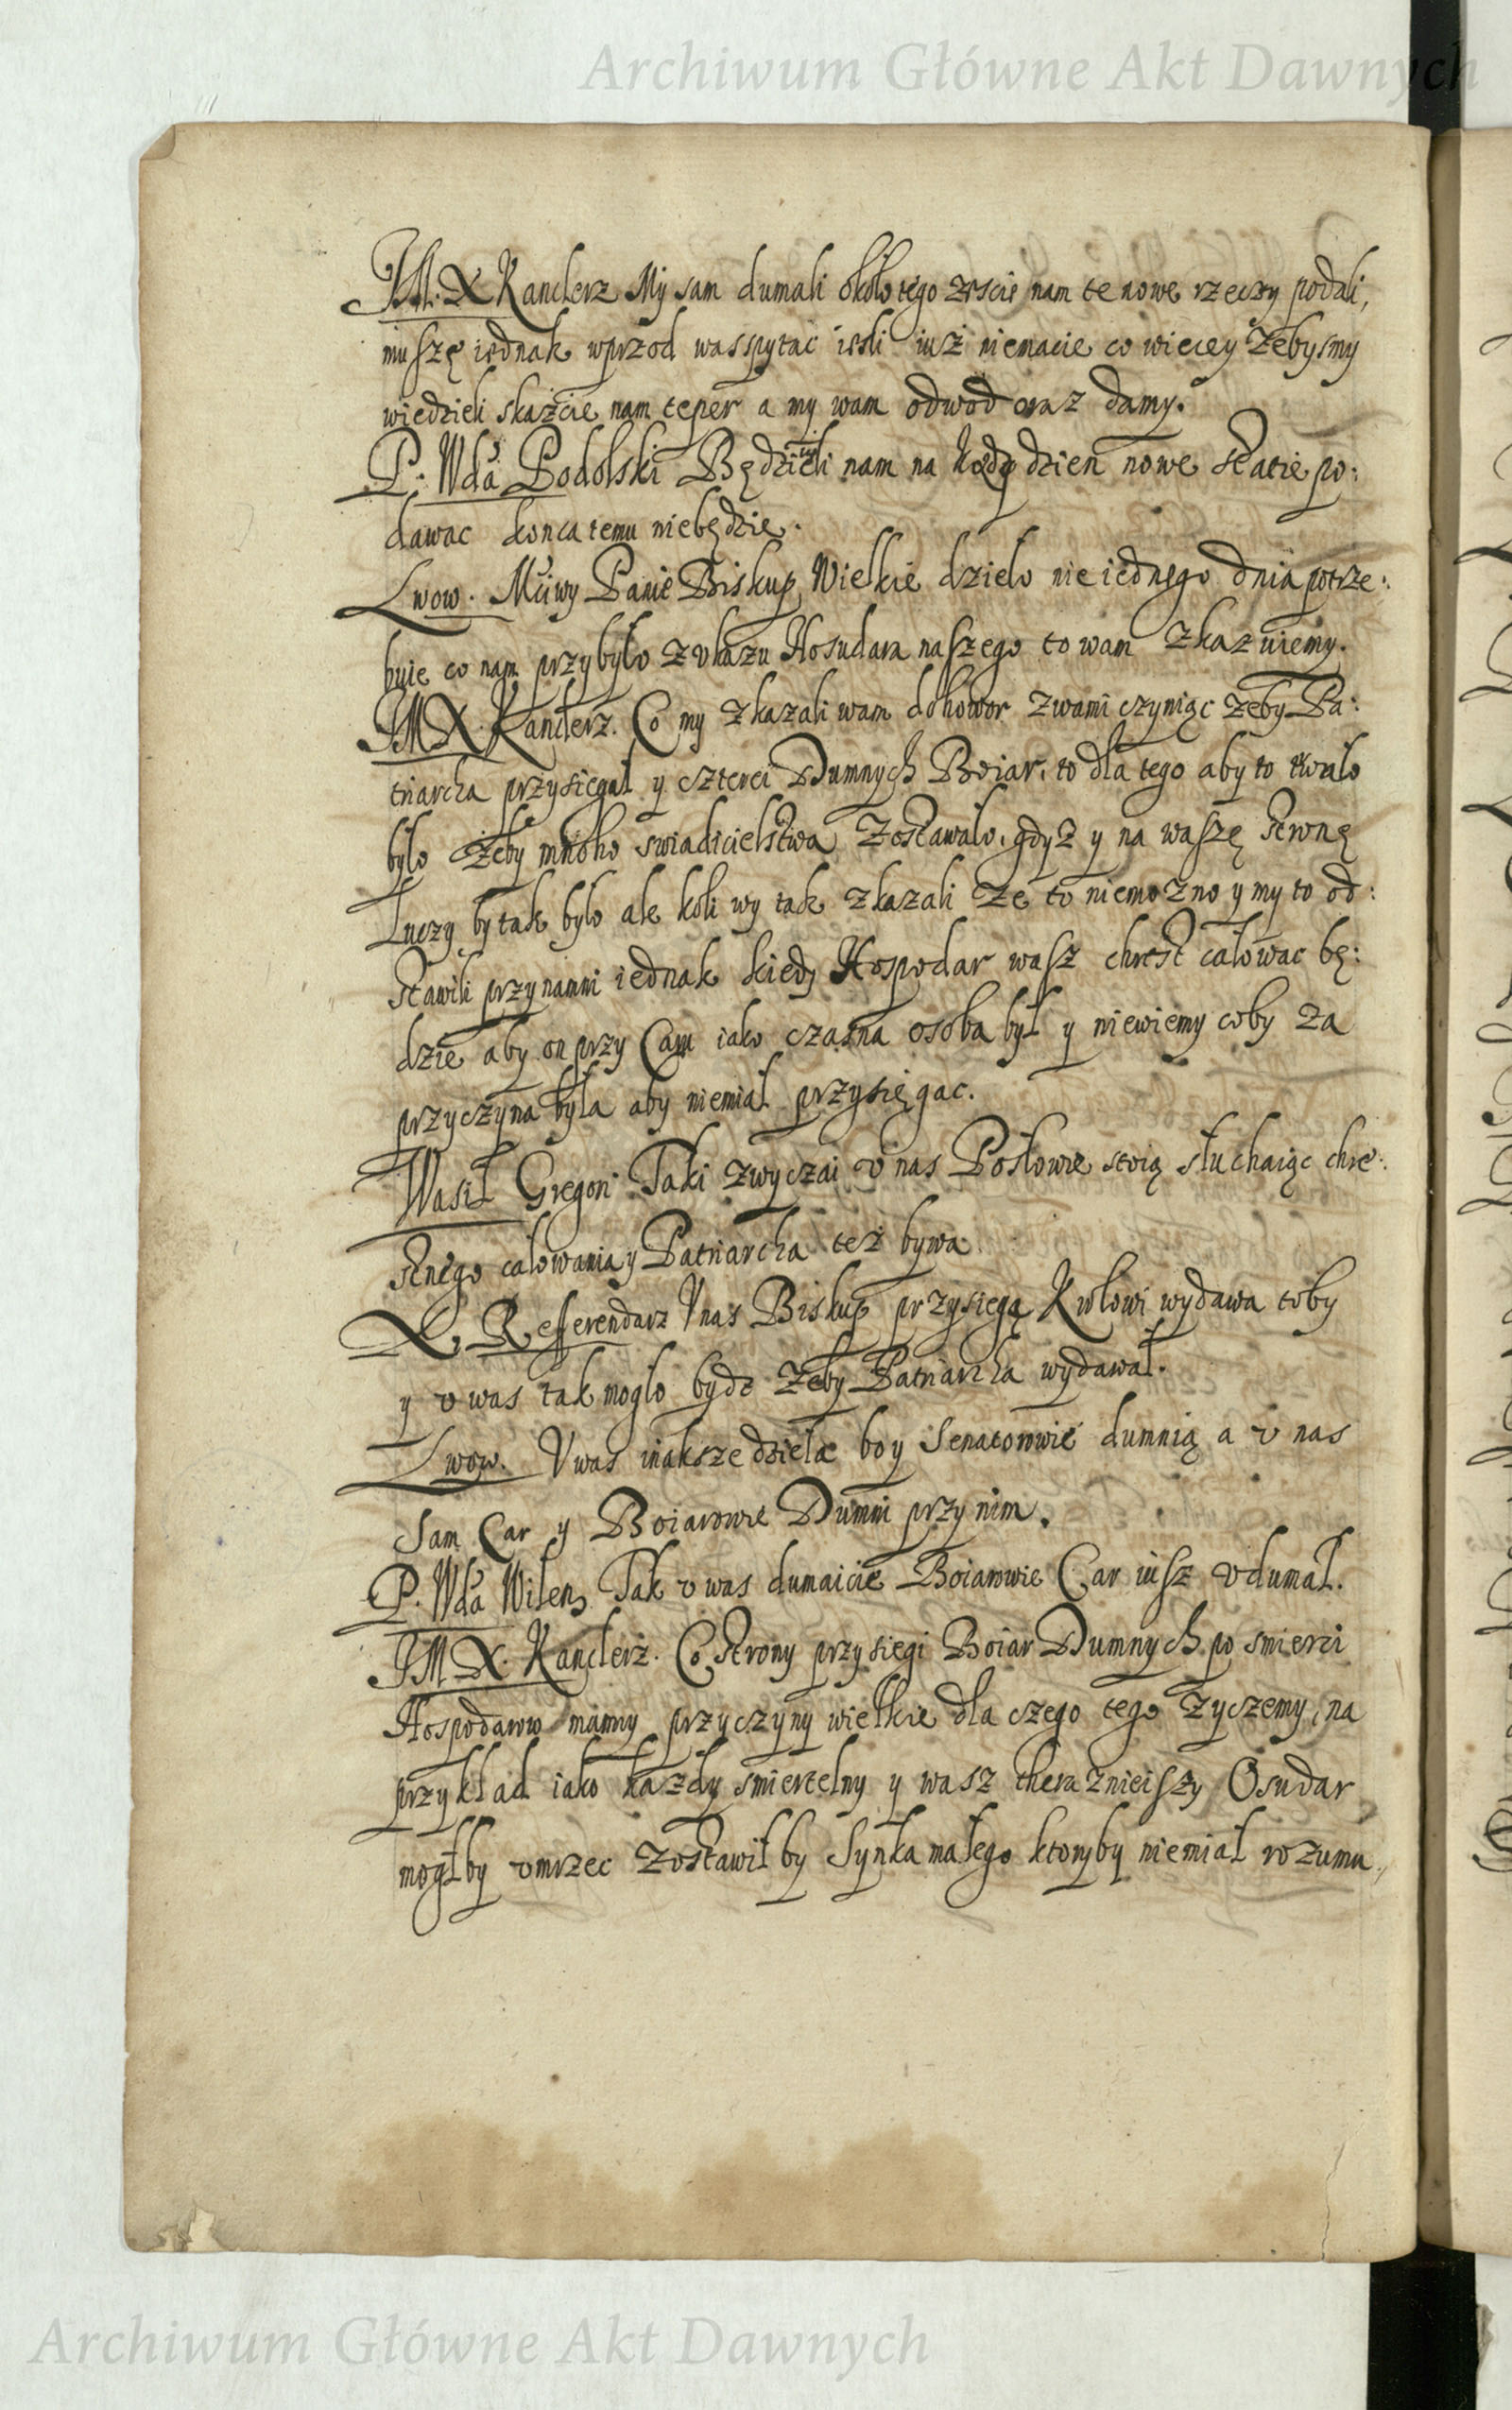 Archiwum Główne Akt Dawnych
JM. X Kanclerz My sam dumali około tego zescie nam te nowe rzeczy podali,
muszę iednak wprzod was spytac iesli iuż niemacie co wiecey żebysmy
wiedzieli skażcie nam teper a my wam odwod oraz damy.
P. Wda Podolski Będzieli nam na kożdy dzien nowe statie po:
dawac konca temu niebędzie.
Lwow. Miłiwy Panie Biskup, Wielkie dzieło nie iednego dnia potrze:
buie co nam przybyło z ukazu Hosudara naszego to wam zkazuiemy.
JM X. Kanclerz. Co my zkazali wam dohowor zwami czyniąc żeby Pa:
triarcha przysięgał y czterei Dumnych Boiar, to dla tego aby to trwało
było żeby mnoho swiadicielstwa zostawało, gdyż y na waszę stronę
Luczy by tak było ale koli wy tak zkazali że to niemożno y my to od:
stawili przynamni iednak kiedy Hospodar wasz chrest całowac bę:
dzie aby on przy Cam iako czasna osoba był y niewiemy coby za
przyczyna była aby niemiał przysięgac.
Wasil Gregori Taki zwyczai u nas Posłowie stoią słuchaiąc chre:
snego całowania y Patriarcha też bywa.
X. Referendarz U nas Biskup przysięgą Krolowi wydawa toby
y u was tak mogło bydz żeby Patriarcha wydawał.
Lwow. U was inaksze dzieła bo y Senatorowie dumnią a u nas
Sam Car y Boiarowie Dumni przy nim.
P. Wda Wilen. Tak u was dumaicie Boiarowie Car iusz udumał.
JM X. Kanclerz. Co strony przysiegi Boiar Dumnych po smierci
Hospodarow mamy przyczyny wielkie dla czego tego życzemy, na
przykład iako każdy smiertelny y wasz therażnieiszy Osudar
mogłby umrzec zostawiłby Synka małego ktoryby niemiał rozumu,
Archiwum Główne Akt Dawnych